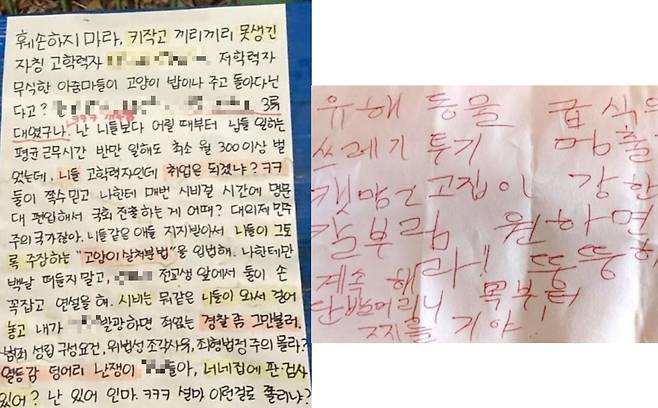 훼손하지 마라, 키작고 끼리끼리 못생긴
자칭 고학력자 저학력자
무식한 아줌마들이 고양이 밥이나 주고 돌아다닌
다고? 3류
ㅋㅋㅋ
대였구나. 난 니들보다 어릴 때부터 님들 일하는
평균 근무시간 반만 일해도 최소 월 300 이상 벌
었는데, 니들 고학력자인데 취업은 되겠냐? ㅋㅋ
둘이 쪽수 믿고 나한테 매번 시비걸 시간에 명문
대 편입해서 국회 진출하는 게 어때? 대의제 민주
주의 국가잖아. 니들같은 애들 지지받아서 니들이 그토
록 주장하는 "고양이 살처분법"을 입법해. 나한테만
백날 떠들지 말고, 전교생 앞에서 둘이 손
꼭잡고 연설을 해. 시비는 뭐같은 니들이 와서 걸어
놓고 내가 발광하면 죄없는 경찰 좀 그만불러.
범죄 성립 구성요건, 위법성 조각사유, 죄형법정주의 몰라?
열등감 덩어리 난쟁이 들아, 너네집에 판·검사
있어? 난 있어 인마. ㅋㅋㅋ 설마 이런걸로 쫄리냐?
유해 동물 급식의
쓰레기 투기
캣맘 고집이 강한
칼부림 원하면
계속 해라! 뚱뚱하
단발머리니 목부터
그야!